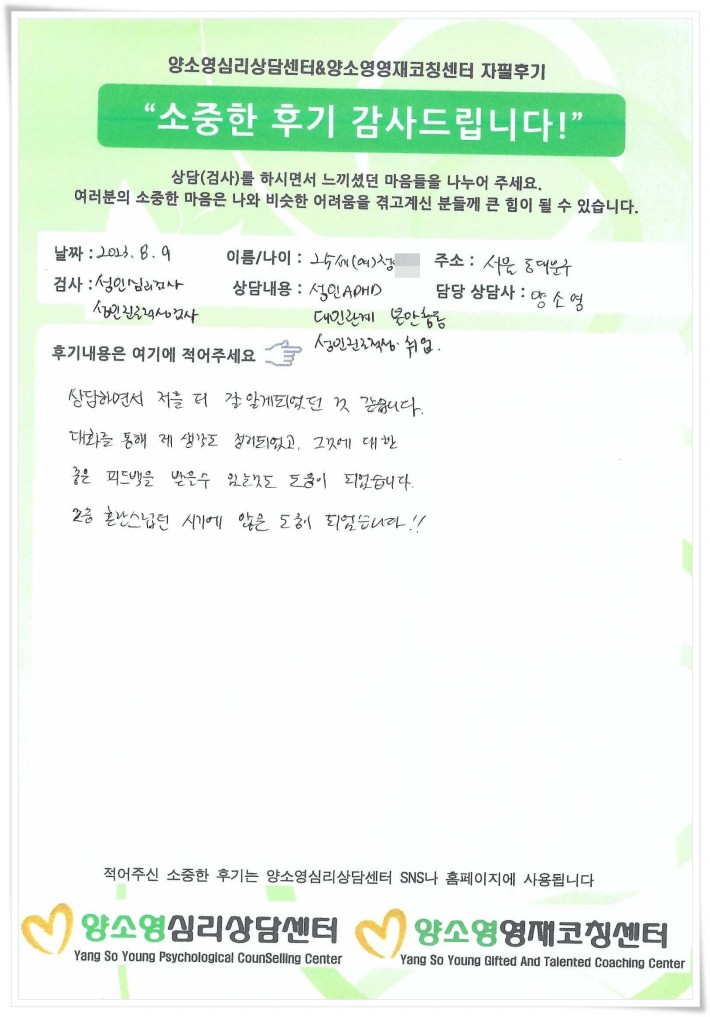 양소영심리상담센터&양소영영재코칭센터 자필후기
“소중한 후기 감사드립니다!”
상담(검사)를 하시면서 느끼셨던 마음들을 나누어 주세요.
여러분의 소중한 마음은 나와 비슷한 어려움을 겪고계신 분들께 큰 힘이 될 수 있습니다.
날짜 : 2023. 8. 9 이름/나이 : 25세(여) 정 주소 : 서울 동대문구
검사 : 성인심리검사 상담내용 : 성인ADHD 담당 상담사 : 양소영
성인진로적성검사 대인관계 불안충동
성인진로적성·취업.
후기내용은 여기에 적어주세요
상담하면서 저를 더 잘 알게되었던 것 같습니다.
대화를 통해 제 생각도 정리되었고, 그것에 대한
좋은 피드백을 받을수 있는것도 도움이 되었습니다.
혼란스럽던 시기에 많은 도움이 되었습니다!!
적어주신 소중한 후기는 양소영심리상담센터 SNS나 홈페이지에 사용됩니다
양소영심리상담센터 양소영영재코칭센터
Yang So Young Psychological CounSelling Center Yang So Young Gifted And Talented Coaching Center